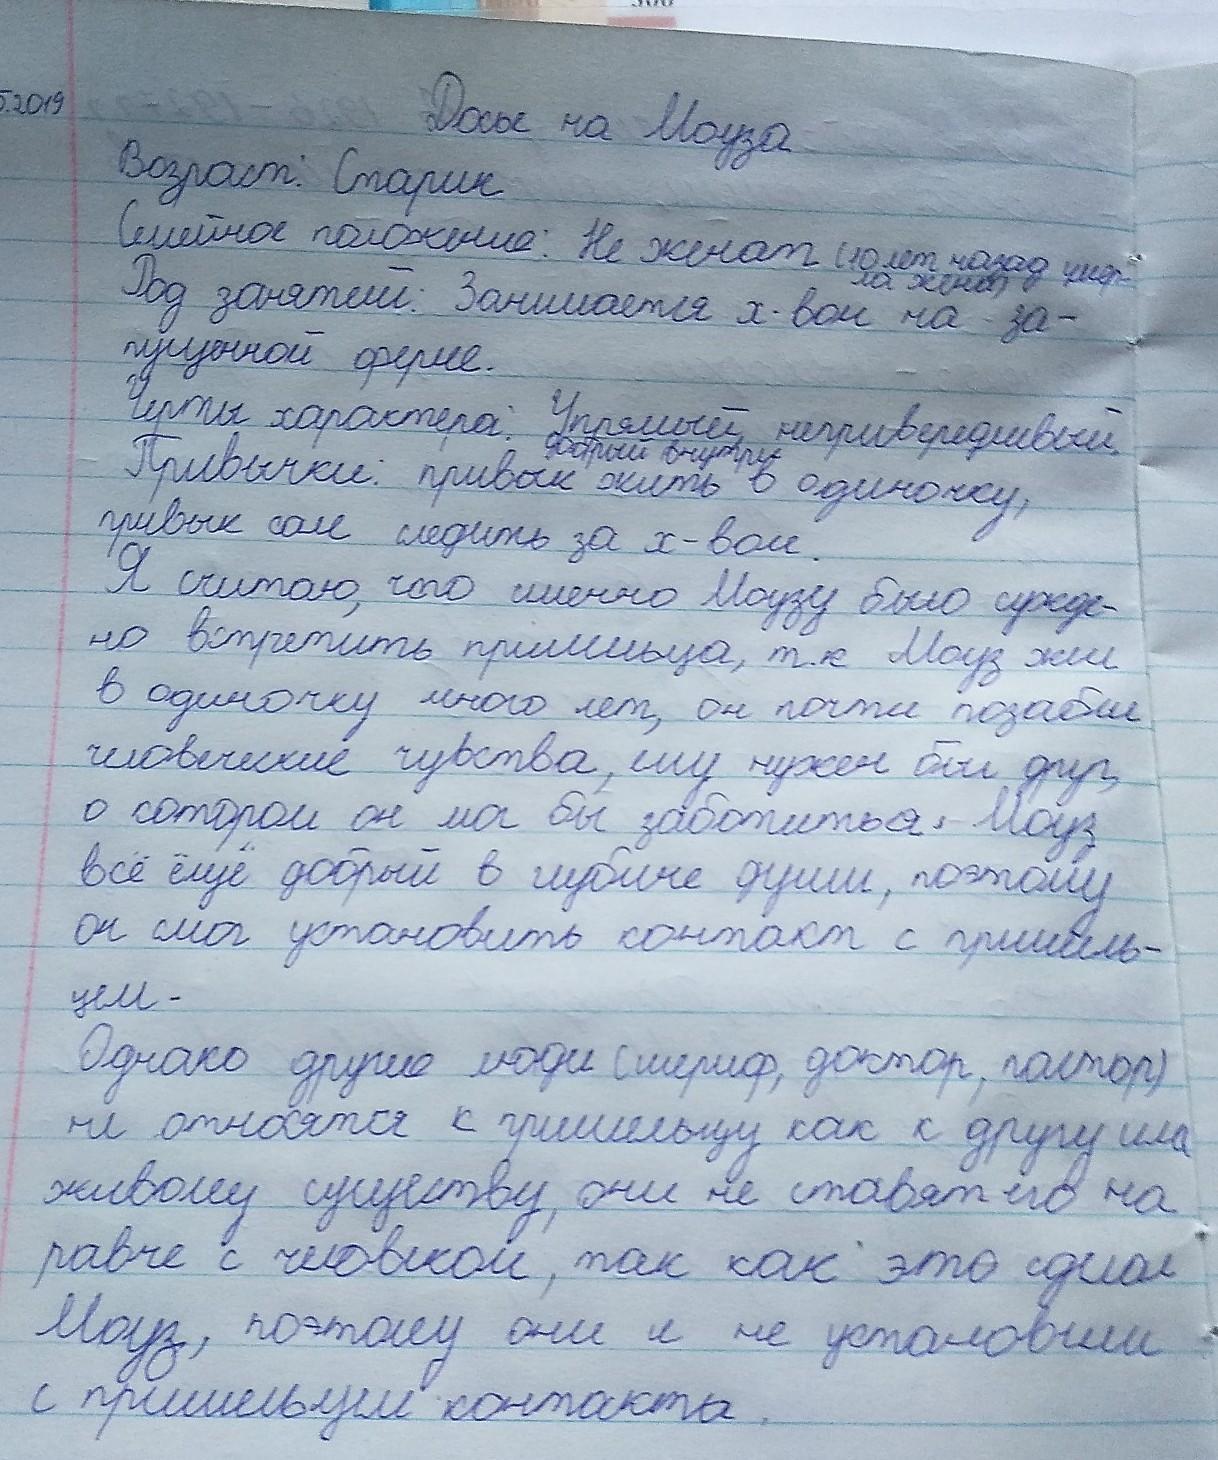 5.2019
Досье на Моуза
Возраст: Старик
Семейное положение: Не женат (10 лет назад умер-
ла жена)
Род занятий: Занимается х-вом на за-
пущенной ферме.
Черты характера: Упрямый, непривередливый,
добрый внутри
Привычки: привык жить в одиночку,
привык сам следить за х-вом.
Я считаю, что именно Моузу было сужде-
но встретить пришельца, т.к Моуз жил
в одиночку много лет, он почти позабыл
человеческие чувства, ему нужен был друг,
о котором он мог бы заботиться. Моуз
всё ещё добрый в глубине души, поэтому
он смог установить контакт с пришель-
цем.
Однако другие люди (шериф, доктор, пастор)
не относятся к пришельцу как к другу или
живому существу, они не ставят его на
равне с человеком, так как это сделал
Моуз, поэтому они и не установили
с пришельцем контакта.